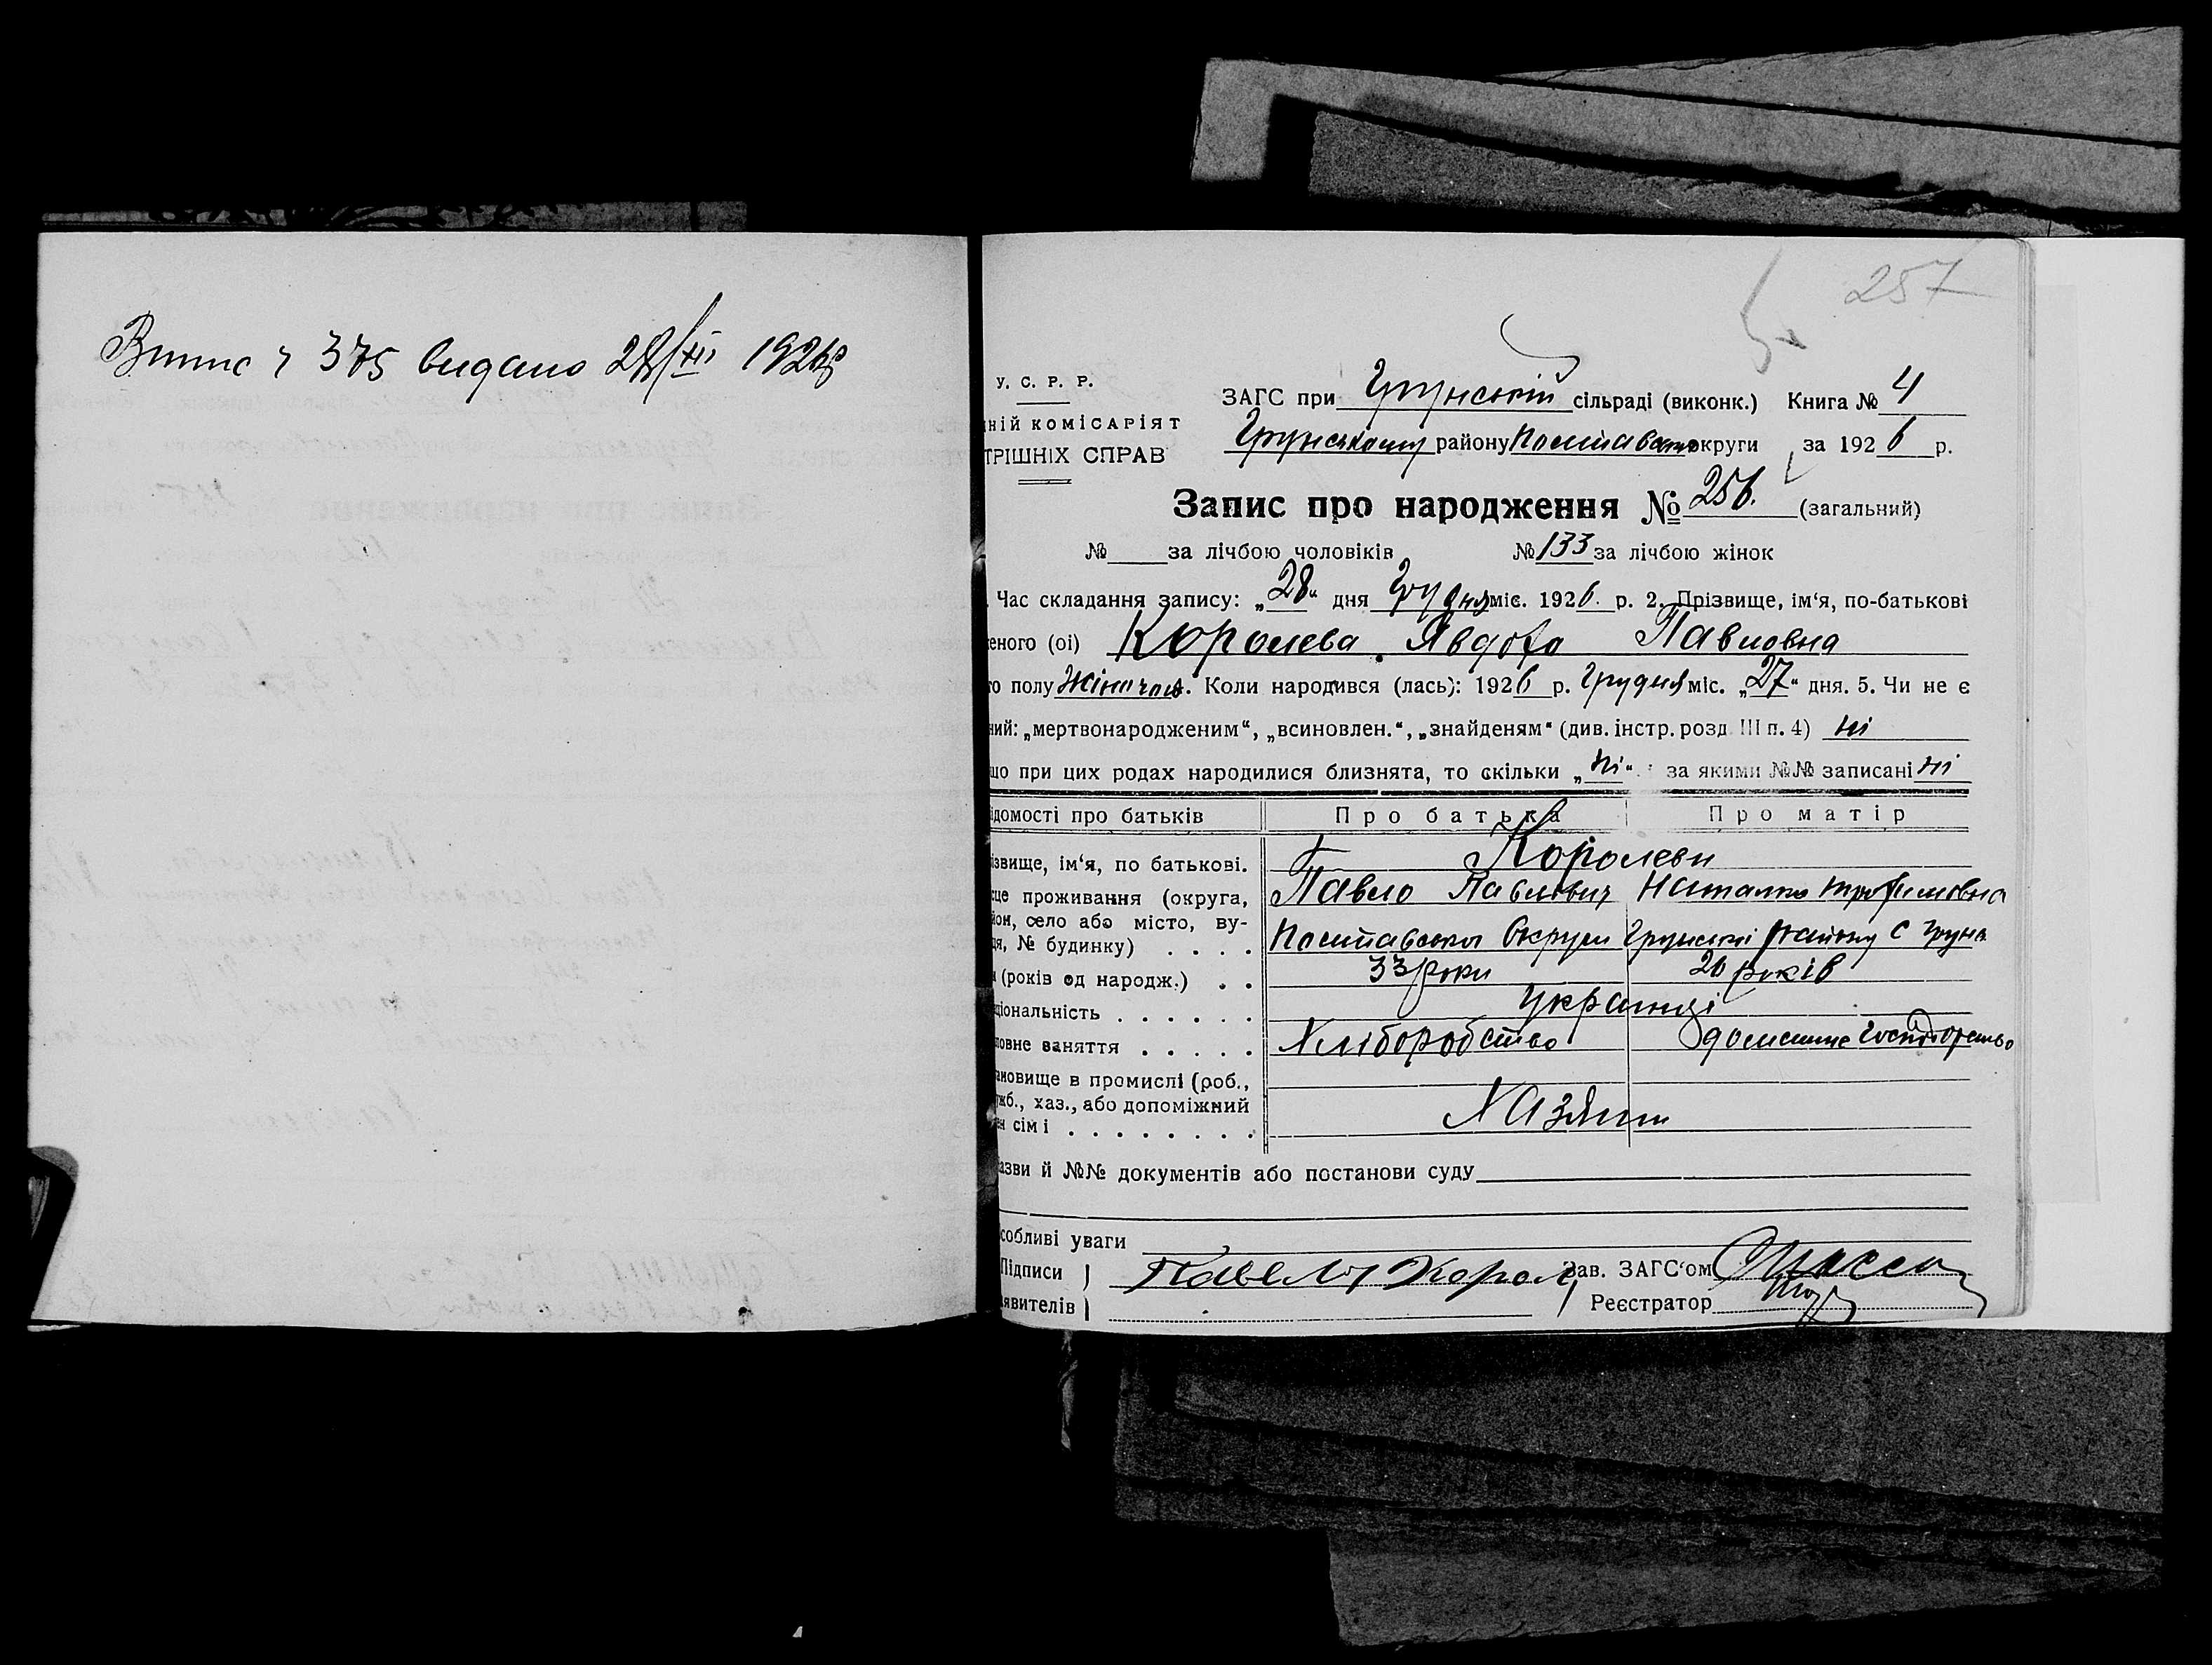 Випис ч 375 видано 28/XII 1926р
257
У. С. Р. Р.
ЗАГС при Грунській сільраді (виконк.) Книга № 4
ній КОМІСАРІЯТ
Грунського району Полтавської округи за 1926 р.
ТРІШНІХ СПРАВ
Запис про народження № 256. (загальний)
№ за лічбою чоловіків № 133 за лічбою жінок
Час складання запису: „28“ дня Грудня міс. 1926. р. 2. Прізвище, ім‘я, по-батькові
еного (ої) Королева Явдоха Павловна
го полу Жіночого. Коли народився (лась): 1926 р. Грудня міс. „27“ дня. 5. Чи не є
ний: „мертвонародженим“, „всиновлен.“, „знайденям“ (див. інстр. розд III п. 4) ні
що при цих родах народилися близнята, то скільки „ні“ за якими №№ записані ні
ідомості про батьків Про батька Про матір
ізвище, ім‘я, по батькові. Королеви
Павло Павлович Наталка Трофимовна
сце проживання (округа,
йон, село або місто, ву-
ця, № будинку) . . . . Полтавської Округи Грунські району с Груна
(років од народж.) . . 33 роки 26 років
ціональність . . . . . . Українці
ловне заняття . . . . . Хліборобство домашнє господорство
ановище в промислі (роб.,
ужб., хаз., або допоміжний
ен сімі . . . . . . . . . Хазяїни
азви й №№ документів або постанови суду
собливі уваги
Підписи } Павло Король Зав. ЗАГС‘ом
явителів } Реєстратор